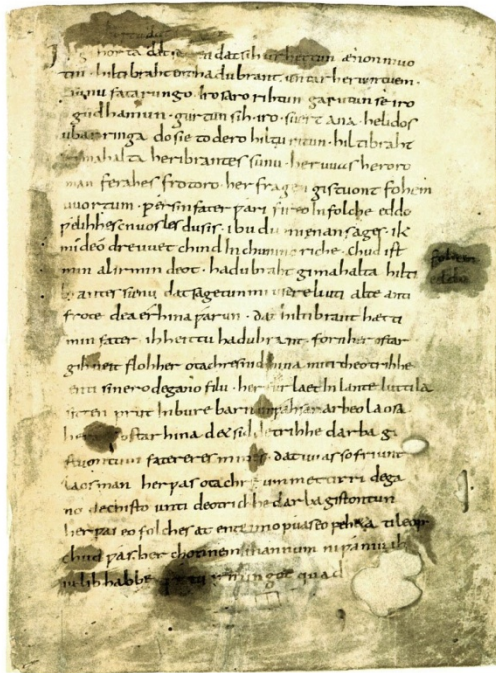 gihorta dat dat sih urhettun ænon muo
tin · hiltibraht enti hadubrant · untar heriun tuem ·
sunu fatarungo · iro saro rihtun garutun se iro
gudhamun · gurtun sih · iro · suert ana · helidos
ubar ringa do sie to dero hiltu ritun · hiltibraht
gimahalta heribrantes sunu · her uuas heroro
man ferahes frotoro · her fragen gistuont fohem
uuortum · ƿer sin fater ƿari fireo In folche eddo
ƿelihhes cnuosles du sis · ibu du mi enan sages · ik
mi deo dre uuet chind In chuninc riche · chud ist
min al irmin deot · hadubraht gimahalta hilti
brantes sunu dat sagetun mi usere liuti alte anti
frote dea erhina ƿarun · dat hiltibrant hætti
min fater · ih heittu hadubrant · forn her ostar
gihueit floh her otachres nid hina miti theotrihhe
enti sinero degano filu · her fur laet In lante luttila
sitten prut In bure barn unƿahsan arbeo laosa
her ostar hina det sid detrihhe darba gi
stuontum fateres mines · dat uuas so friunt
laos man her ƿas otachre ummet tirri dega
no dechisto unti deotrichhe darba gistontun
her ƿas eo folches at ente imo ƿuas eo ti leop
chud ƿas her chonnem mannum ni ƿaniu ih
iu lib habbe irmingot quad
fohem
eddo